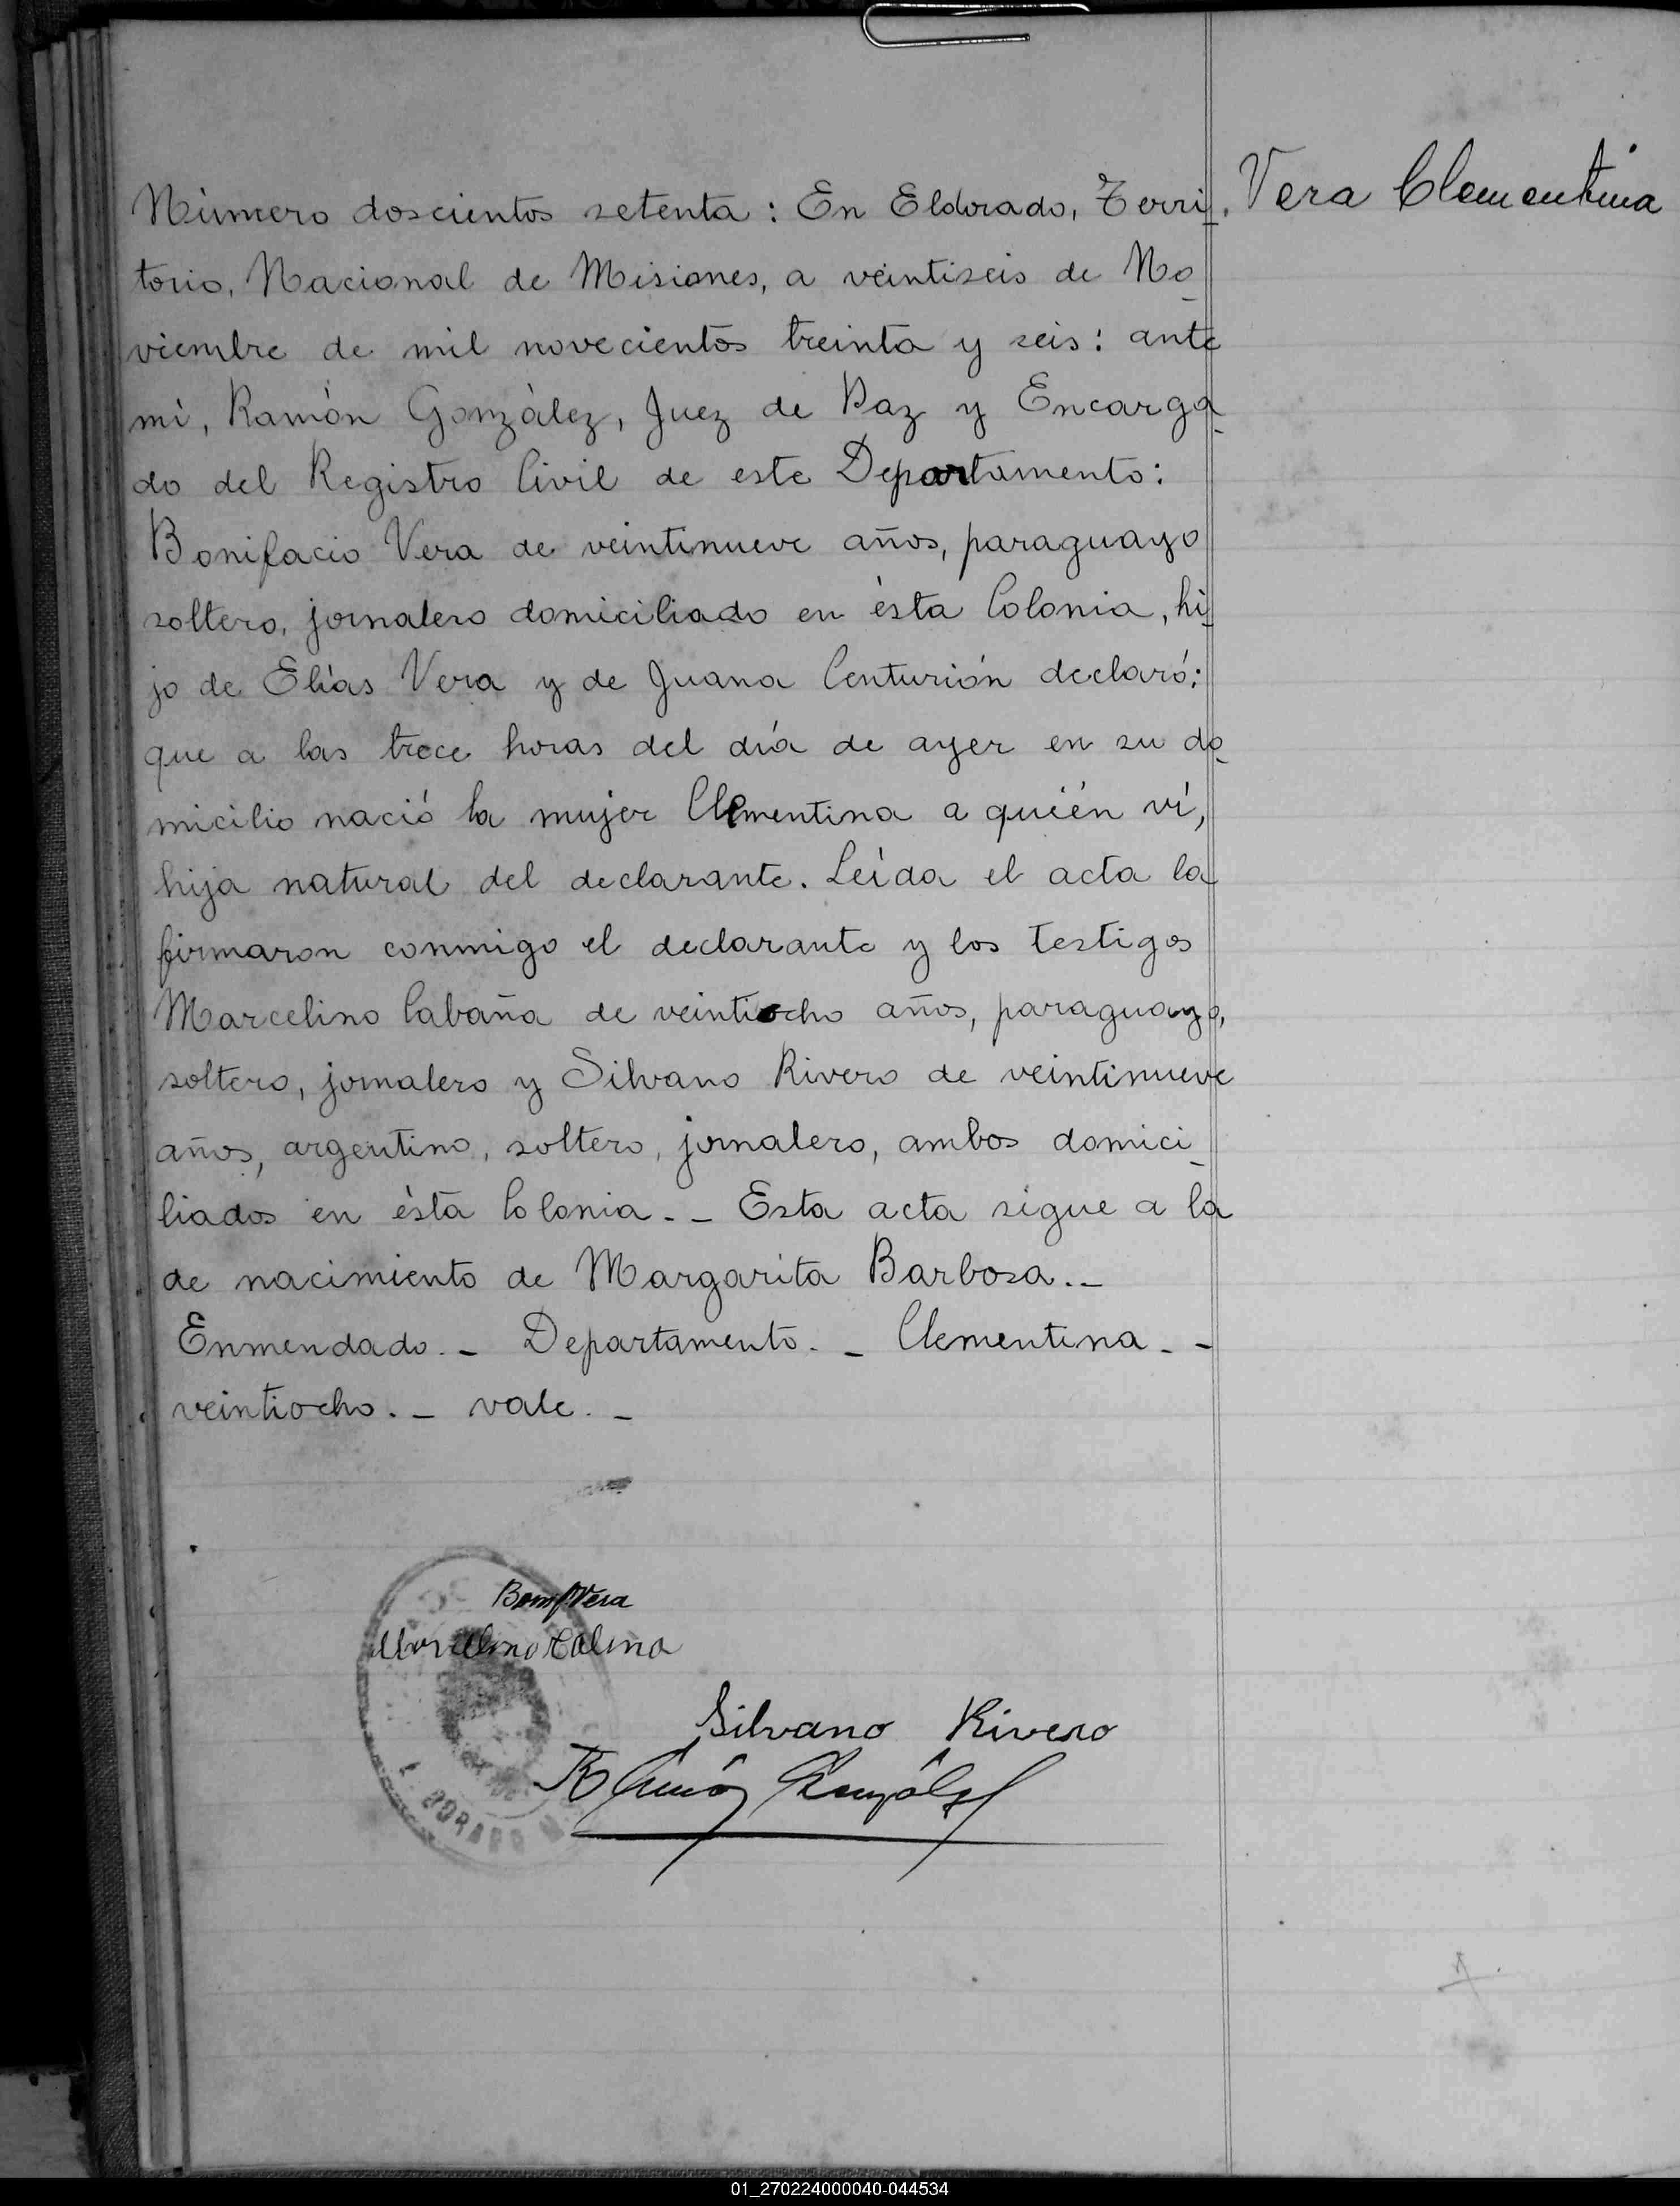 Vera Clementina
Número doscientos setenta: En Eldorado, Terri-
torio, Nacional de Misiones, a veintiseis de No-
viembre de mil novecientos treinta y seis: ante
mí, Ramón González, Juez de Paz y Encarga-
do del Registro Civil de este Departamento:
Bonifacio Vera de veintinueve años, paraguayo
soltero, jornalero domiciliado en ésta Colonia, hi-
jo de Elías Vera y de Juana Centurión declaró:
que a las trece horas del día de ayer en su do-
micilio nació la mujer Clementina a quién ví,
hija natural del declarante. Leída el acta la
firmaron conmigo el declarante y los testigos
Marcelino Cabaña de veintiocho años, paraguayo,
soltero, jornalero y Silvano Rivero de veintinueve
años, argentino, soltero, jornalero, ambos domici-
liados en ésta Colonia._ _ Esta acta sigue a la
de nacimiento de Margarita Barbosa._
Enmendado._ Departamento._ Clementina._ _
veintiocho._ vale._
Bonif Vera
Silvano Rivero
Ramón González
DORADO
01_270224000040-044534